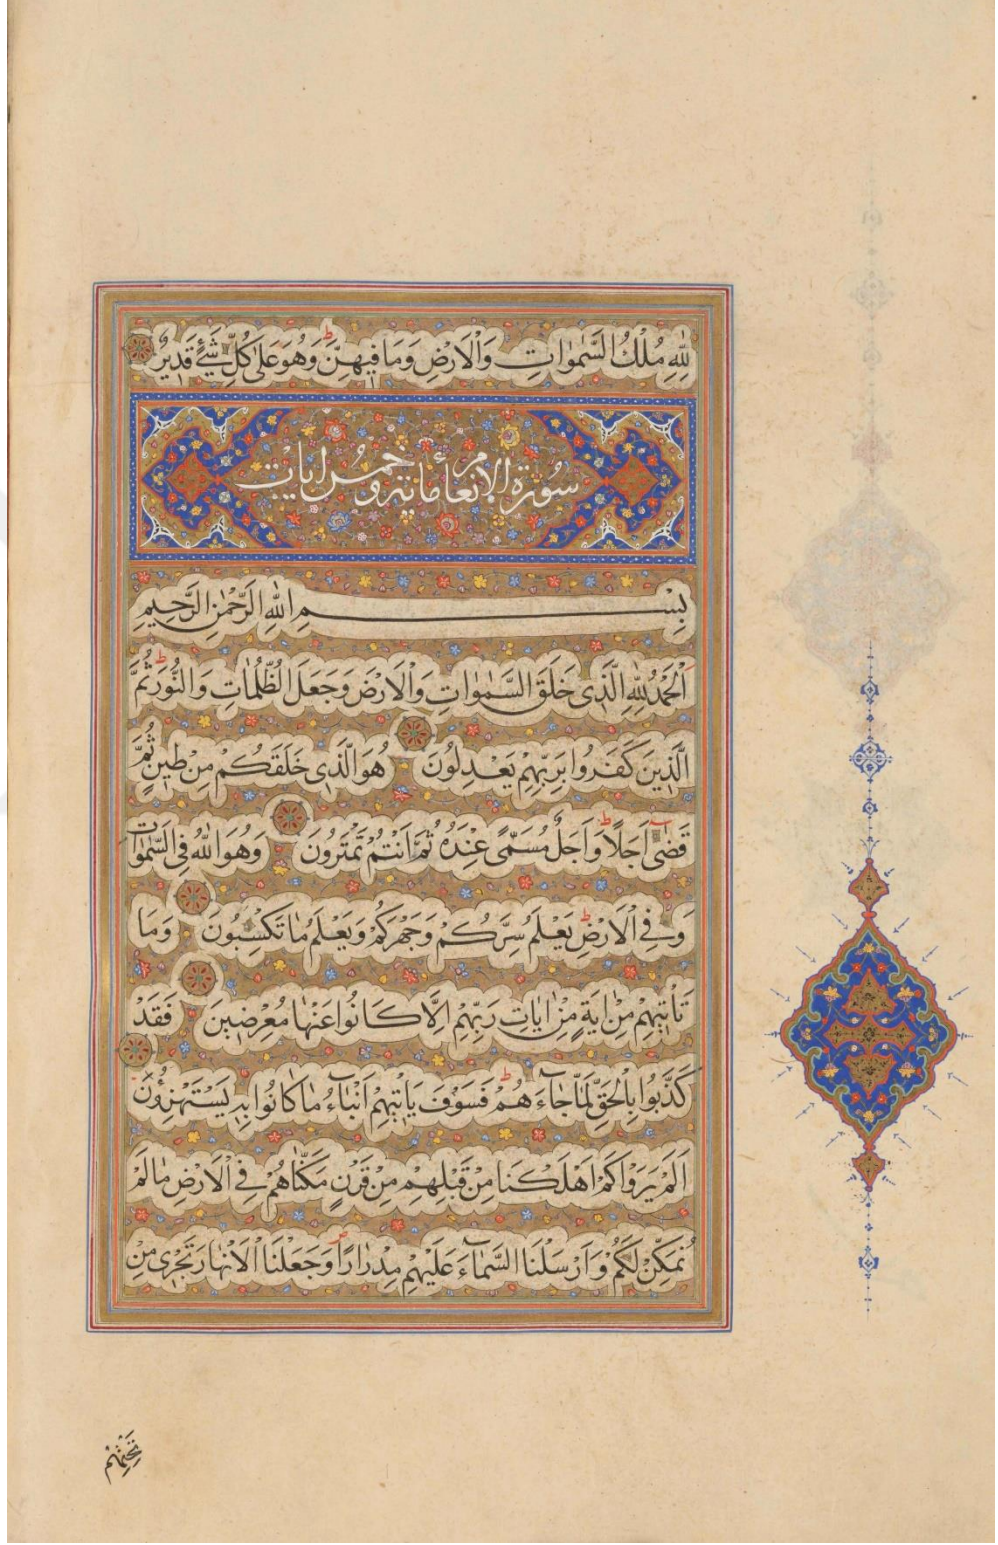 لِلّٰهِ مُلْكُ السَّمٰوَاتِ وَالْاَرْضِ وَمَا فِيهِنَّ ط وَهُوَ عَلٰى كُلِّ شَيْءٍ قَدِيرٌ
سُورَة الانعام مائة وخمس ايات
بِسْمِ اللّٰهِ الرَّحْمٰنِ الرَّحِيمِ
اَلْحَمْدُ لِلّٰهِ الَّذِى خَلَقَ السَّمٰوَاتِ وَالْاَرْضَ وَجَعَلَ الظُّلُمَاتِ وَالنُّورَ ط ثُمَّ
الَّذِينَ كَفَرُوا بِرَبِّهِمْ يَعْدِلُونَ هُوَ الَّذِى خَلَقَكُمْ مِنْ طِينٍ ثُمَّ
قَضٰٓى اَجَلًا ط وَاَجَلٌ مُسَمًّى عِنْدَهُ ثُمَّ اَنْتُمْ تَمْتَرُونَ وَهُوَ اللّٰهُ فِى السَّمٰوَاتِ
وَفِى الْاَرْضِ ط يَعْلَمُ سِرَّكُمْ وَجَهْرَكُمْ وَيَعْلَمُ مَا تَكْسِبُونَ وَمَا
تَأْتِيهِمْ مِنْ اٰيَةٍ مِنْ اٰيَاتِ رَبِّهِمْ اِلَّا كَانُوا عَنْهَا مُعْرِضِينَ فَقَدْ
كَذَّبُوا بِالْحَقِّ لَمَّا جَٓاءَهُمْ ط فَسَوْفَ يَأْتِيهِمْ اَنْبَٓاءُ مَا كَانُوا بِهِ يَسْتَهْزِؤُنَ
اَلَمْ يَرَوْا كَمْ اَهْلَكْنَا مِنْ قَبْلِهِمْ مِنْ قَرْنٍ مَكَّنَّاهُمْ فِى الْاَرْضِ مَا لَمْ
نُمَكِّنْ لَكُمْ وَاَرْسَلْنَا السَّمَٓاءَ عَلَيْهِمْ مِدْرَارًا وَجَعَلْنَا الْاَنْهَارَ تَجْرِى مِنْ
تَحْتِهِمْ